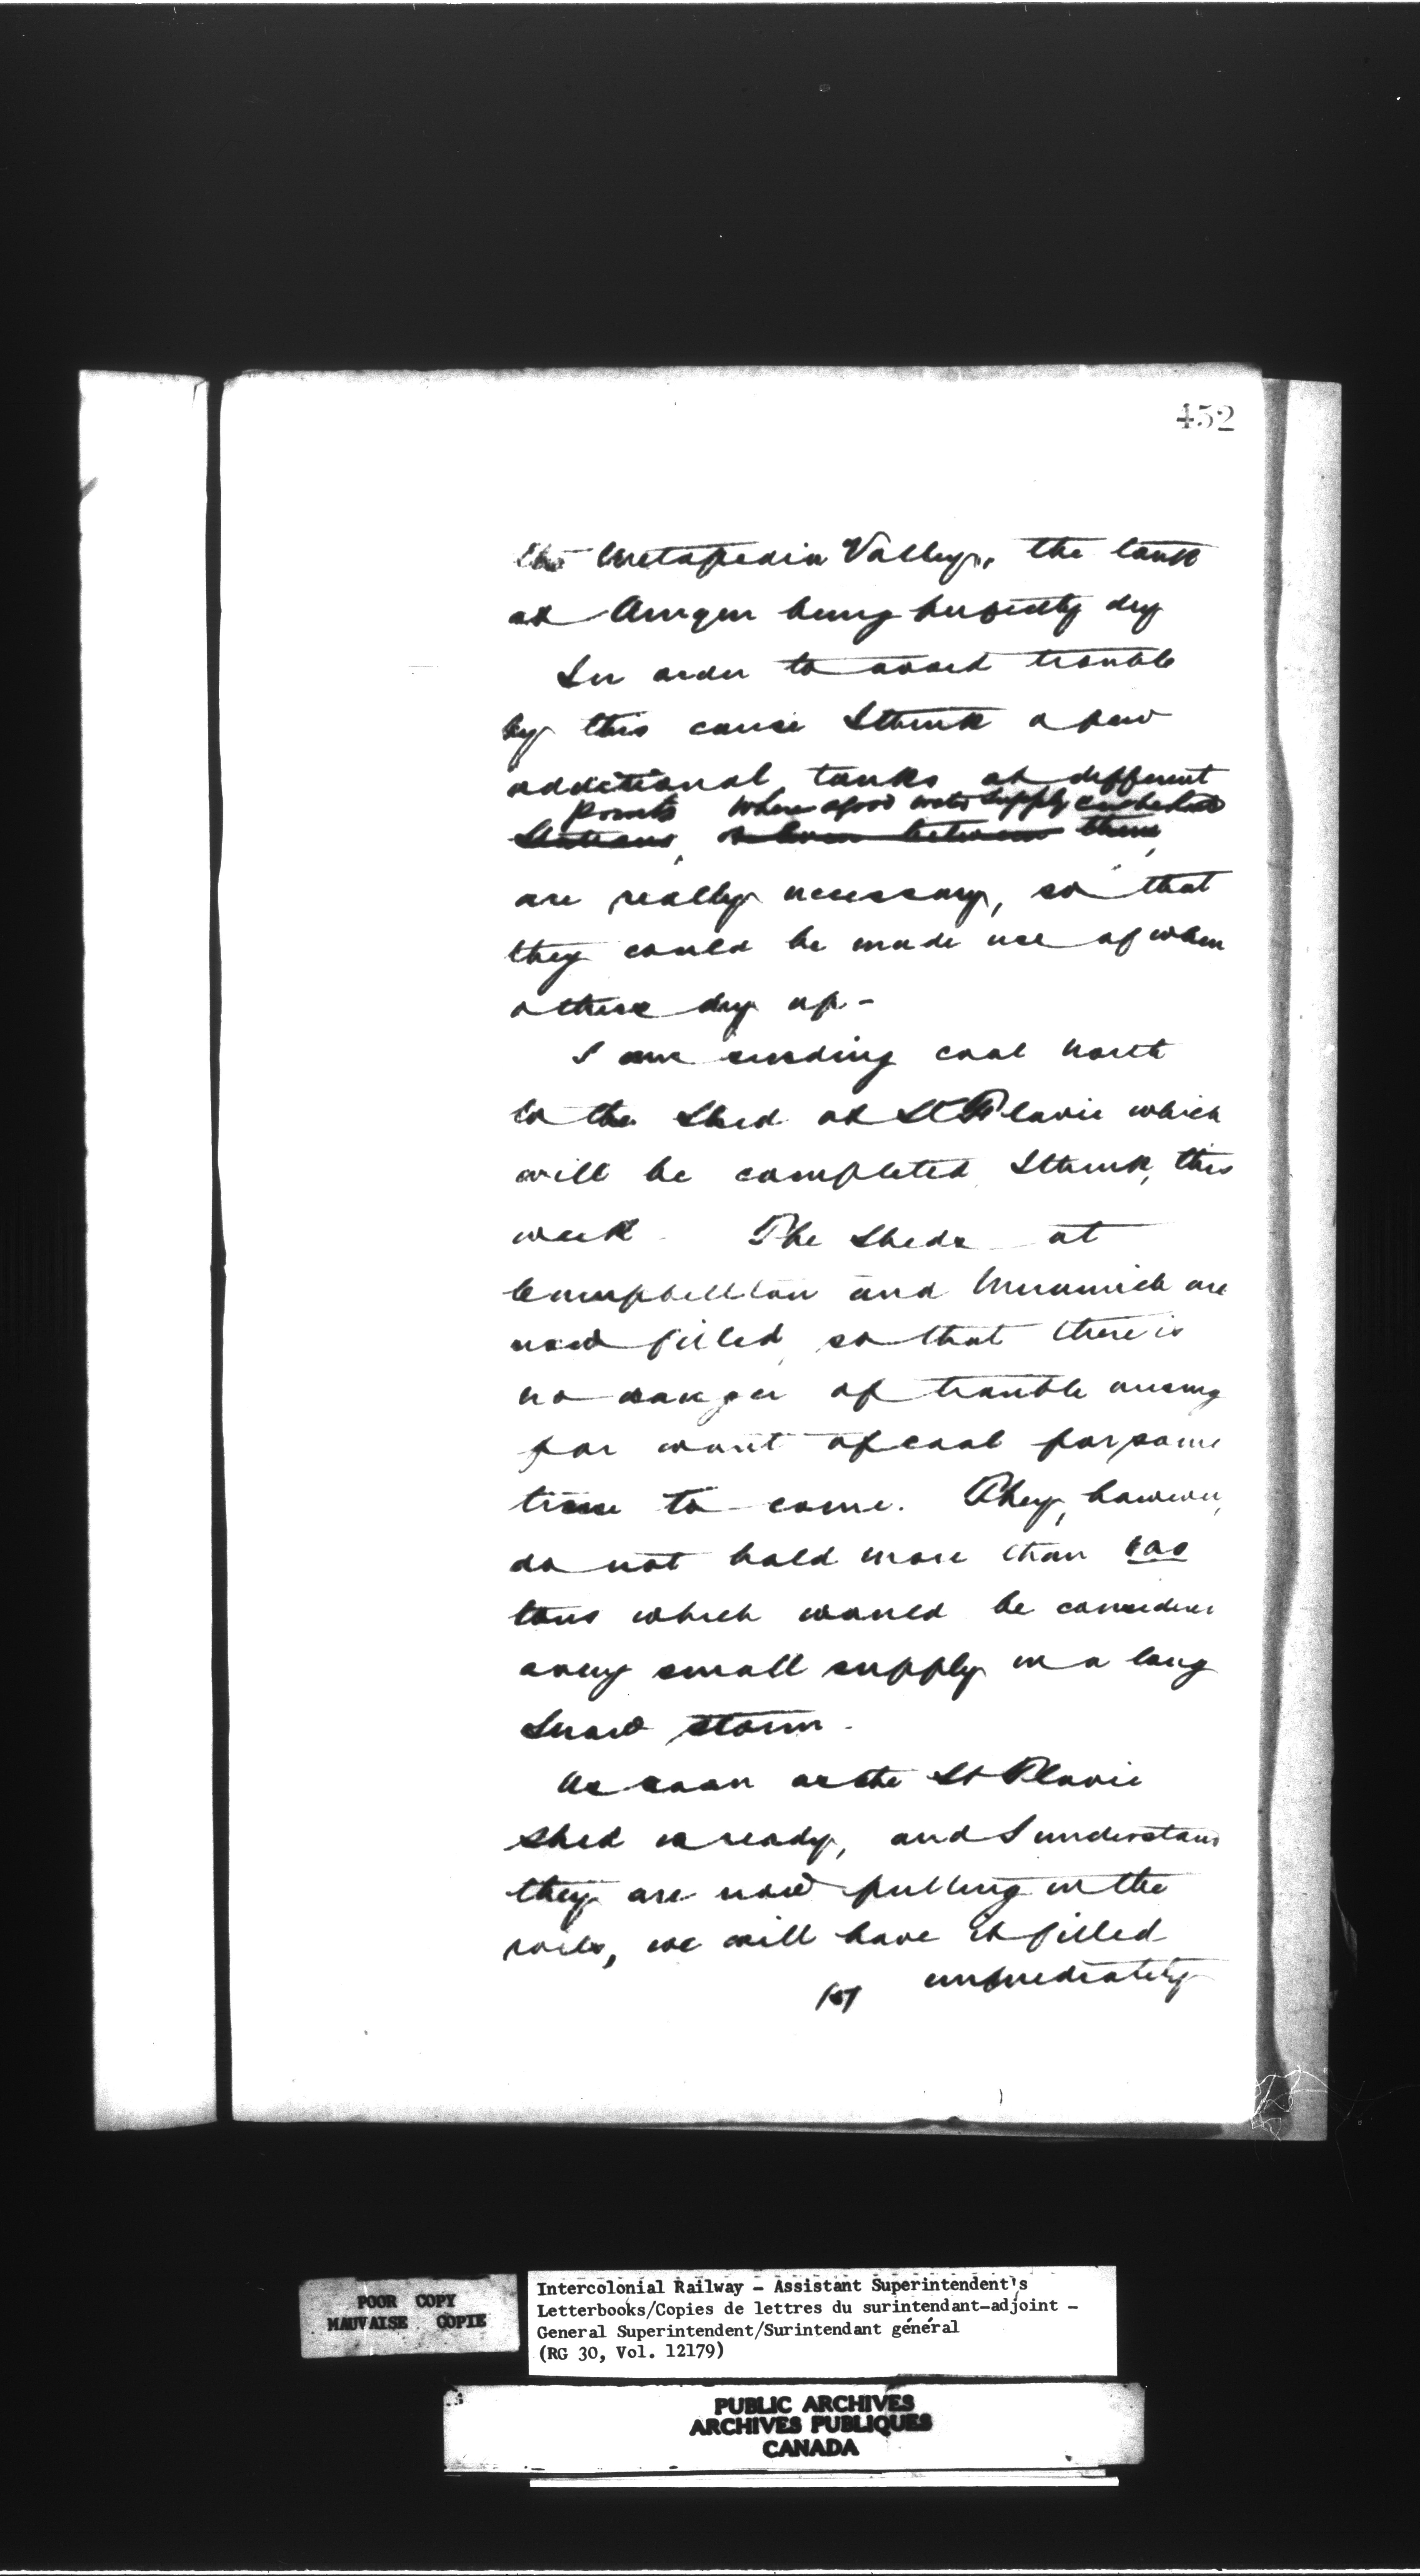 452
the Metapedia Valley, the tank
at Amqui being perfectly dry
In order to avoid trouble
by this cause I think a few
additional tanks at different
points where a good water supply can be had
Stations, or even between them,
are really necessary, so that
they could be made use of when
others dry up -
I am sending coal north
to the Shed at St Flavie which
will be completed, I think, this
week. The Sheds at
Campbellton and Miramichi are
now filled, so that there is
no danger of trouble arising
for want of coal for some
time to come. They, however,
do not hold more than
tons which would be considered
a very small supply in a long
Snow storm.
As soon as the St Flavie
shed is ready, and I understand
they are now putting in the
rails, we will have it filled
immediately
POOR COPY
MAUVAISE COPIE
Intercolonial Railway - Assistant Superintendent's
Letterbooks/Copies de lettres du surintendant-adjoint -
General Superintendent/Surintendant général
(RG 30, Vol. 12179)
PUBLIC ARCHIVES
ARCHIVES PUBLIQUES
CANADA